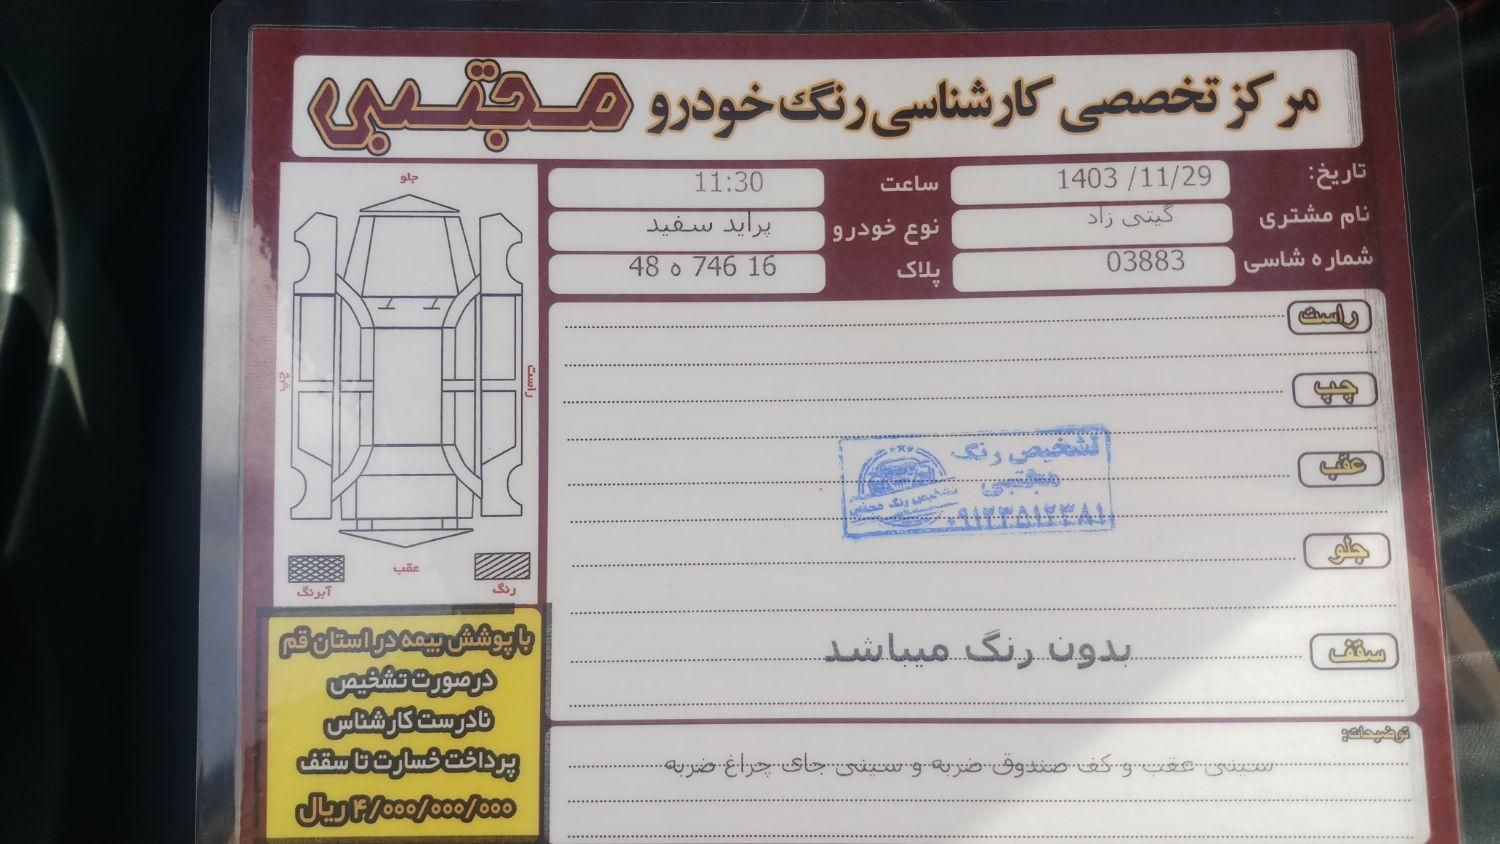 مرکز تخصصی کارشناسی رنگ خودرو مجتبی
تاریخ: 1403 /11/29 ساعت 11:30
نام مشتری گیتی زاد نوع خودرو پراید سفید
شماره شاسی 03883 پلاک 48 ه 746 16
جلو
راست
چپ
عقب
رنگ
آبرنگ
راست
چپ
عقب
جلو
سقف بدون رنگ میباشد
تشخیص رنگ
مجتبی
تشخیص رنگ مجتبی
۰۹۱۲۳۵۱۲۳۸۱
توضیحات:
سینی عقب و کف صندوق ضربه و سینی جای چراغ ضربه
با پوشش بیمه در استان قم
درصورت تشخیص
نادرست کارشناس
پرداخت خسارت تا سقف
۴/۰۰۰/۰۰۰/۰۰۰ ریال